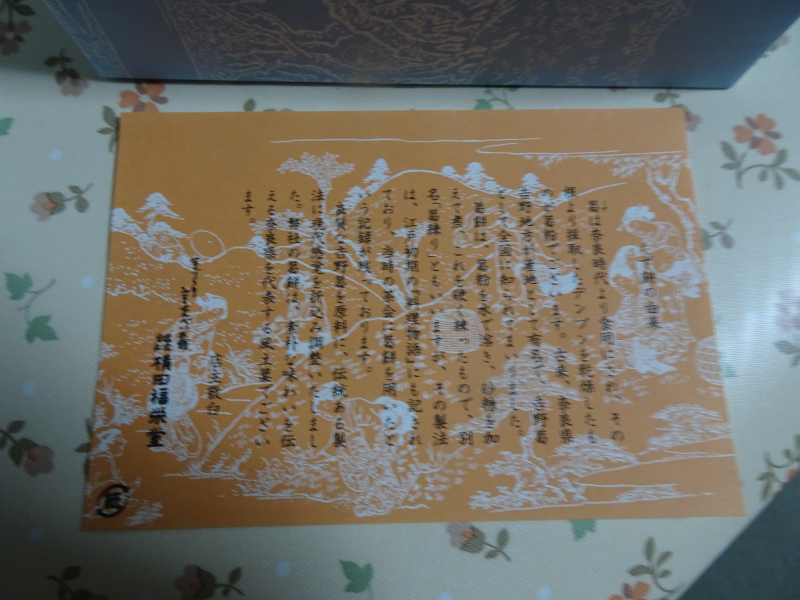 葛餅の由来
葛は奈良時代より食用にされ、その
根より採取したデンプンを乾燥したも
のが葛粉でございます。古来、奈良県
吉野地方が産地として有名で、吉野葛
として全国に知られてまいりました。
葛餅は、葛粉を水で溶き、砂糖を加
えて煮、これを硬く練ったもので、別
名「葛練り」ともいいますが、その製法
は、江戸初期の「料理物語」にも記され
ており、当時の茶会に葛餅を用いたと
いう記録が残っております。
良質な吉野葛を原料に、伝統ある製
法に現代感覚を折込み調整いたしまし
た。弊社の葛餅は、素朴な味わいを伝
える奈良県を代表する風土菓でござい
ます。
店主敬白
横田福栄堂